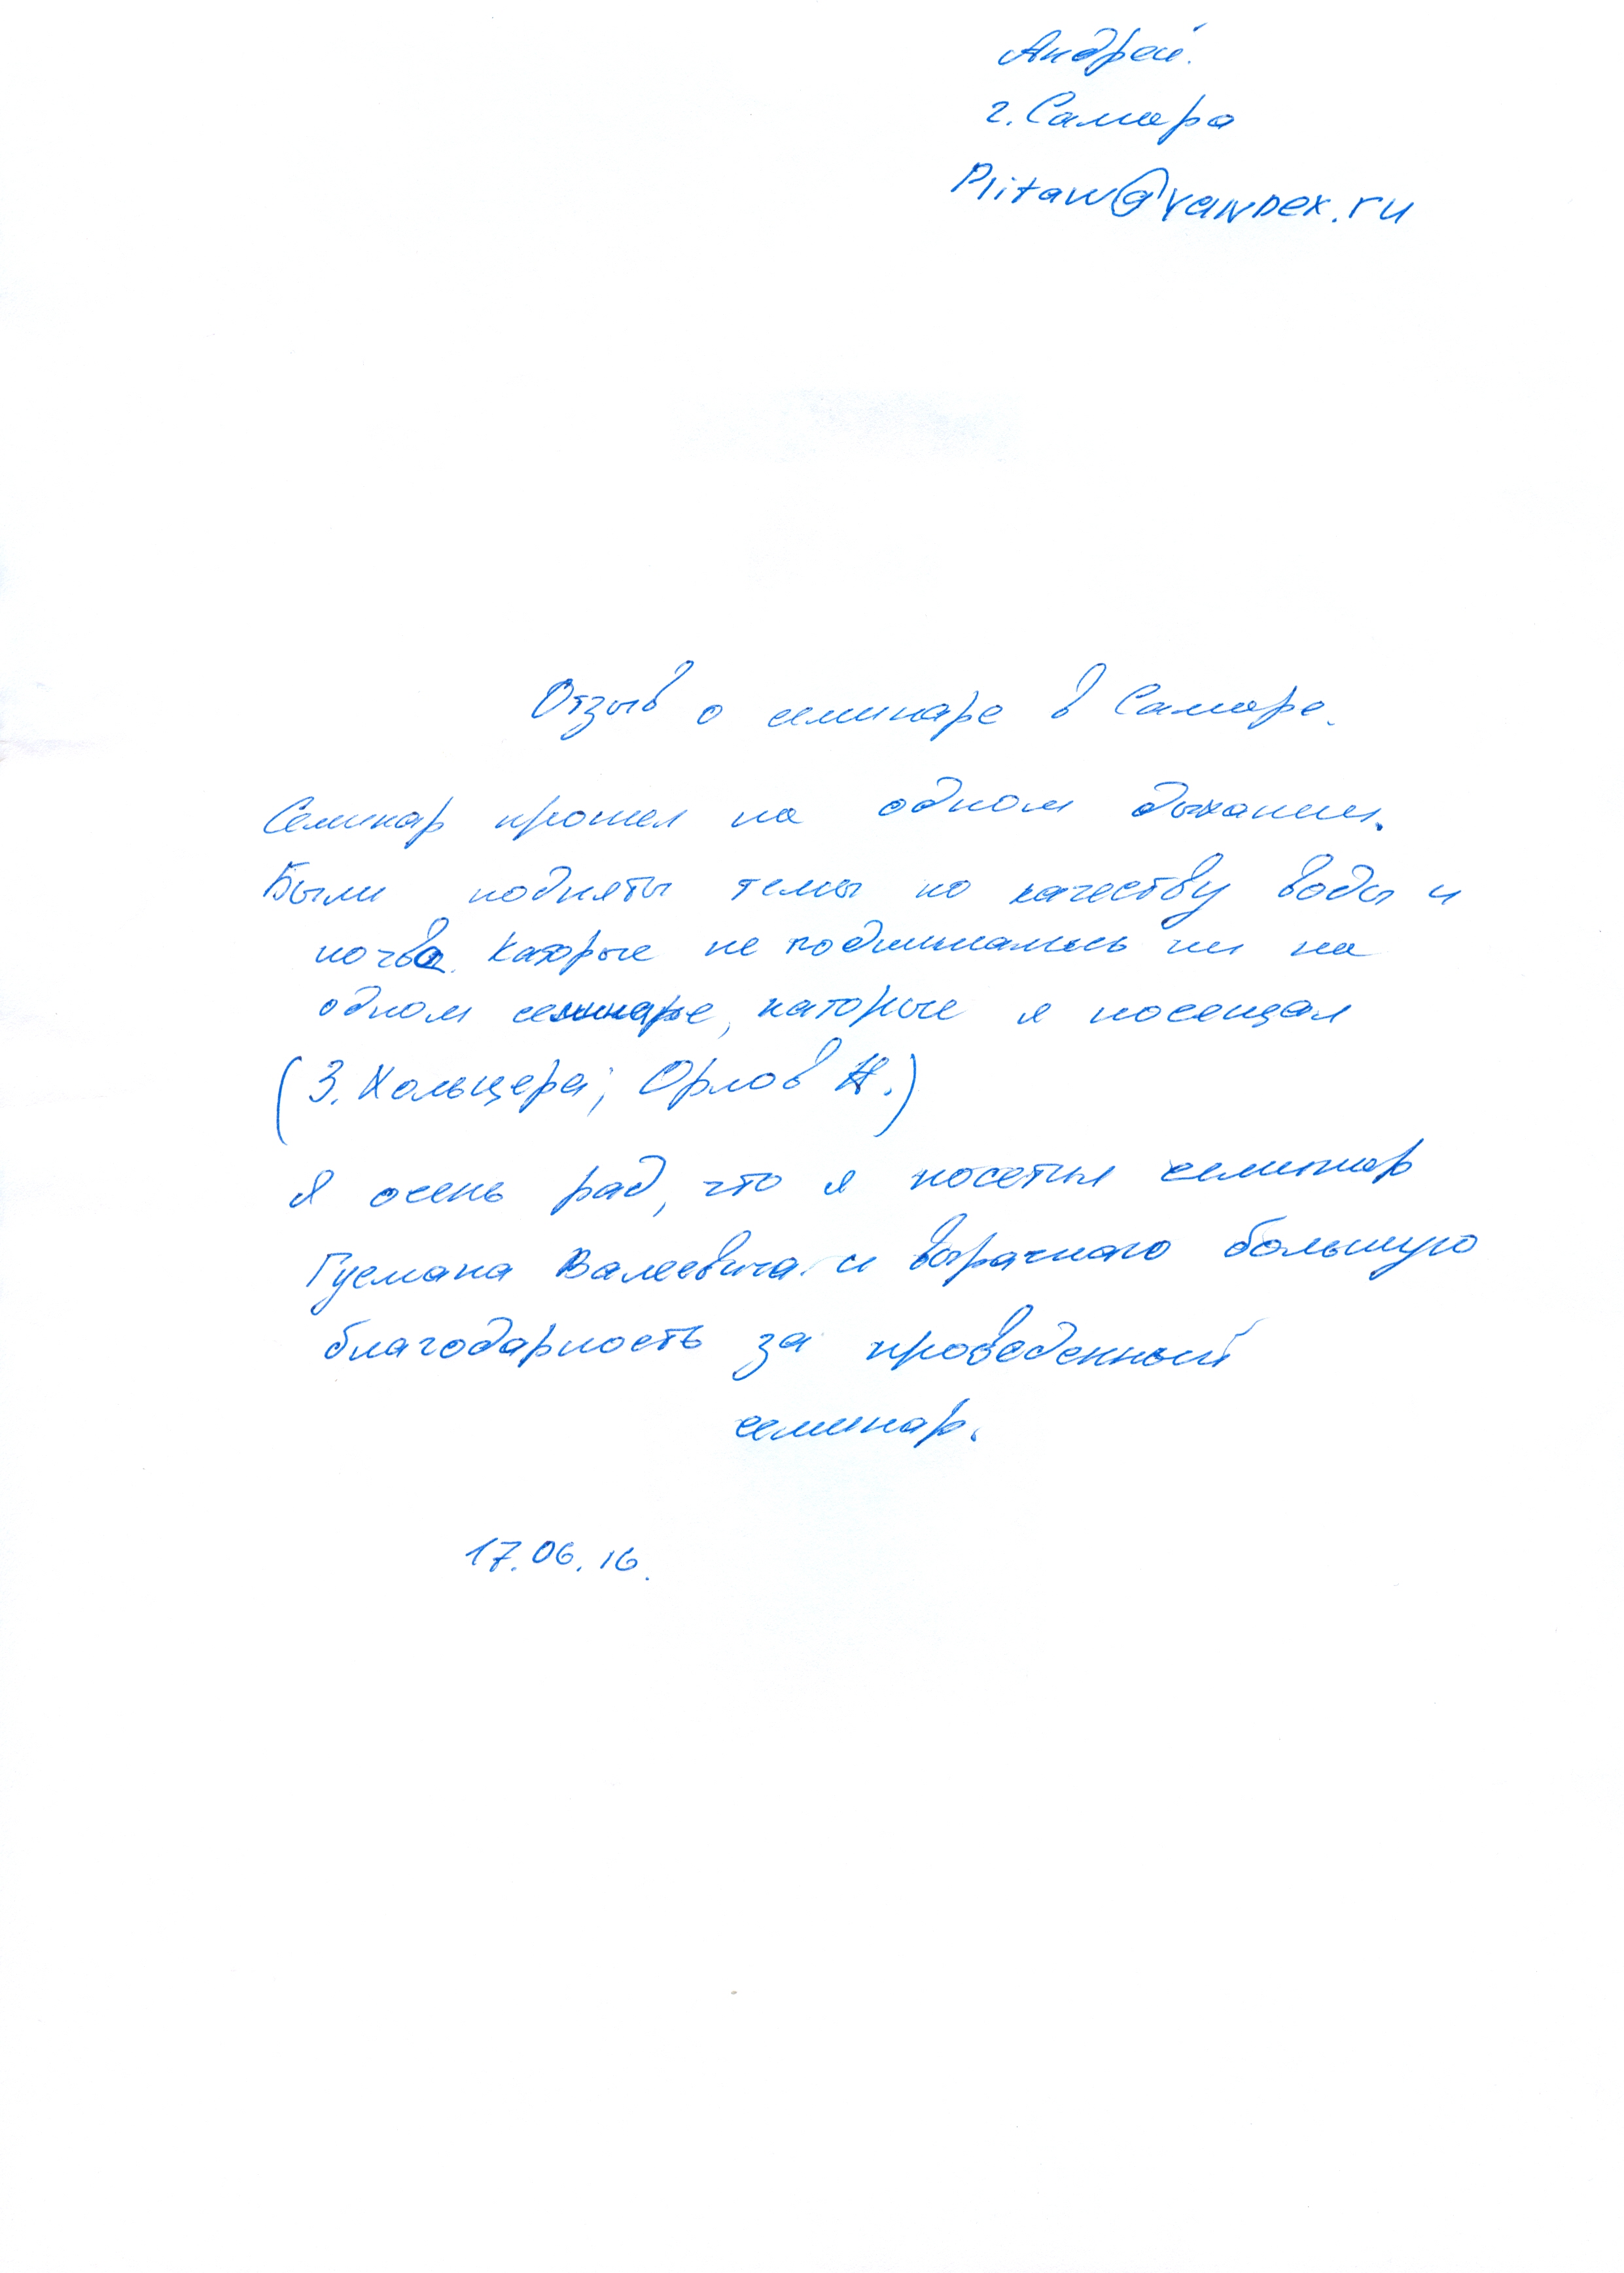 Андрей.
г. Самара
Plitaw@yandex.ru
Отзыв о семинаре в Самаре.
Семинар прошел на одном дыхании.
Были подняты темы по качеству воды и
почва. Каторые не поднимались ни на
одном семинаре, каторые я посещал
(З. Хольцера; Орлов Н.)
Я очень рад, что я посетил семинар
Гусмана Валеевича и выражаю большую
благодарность за проведенный
семинар.
17.06.16.